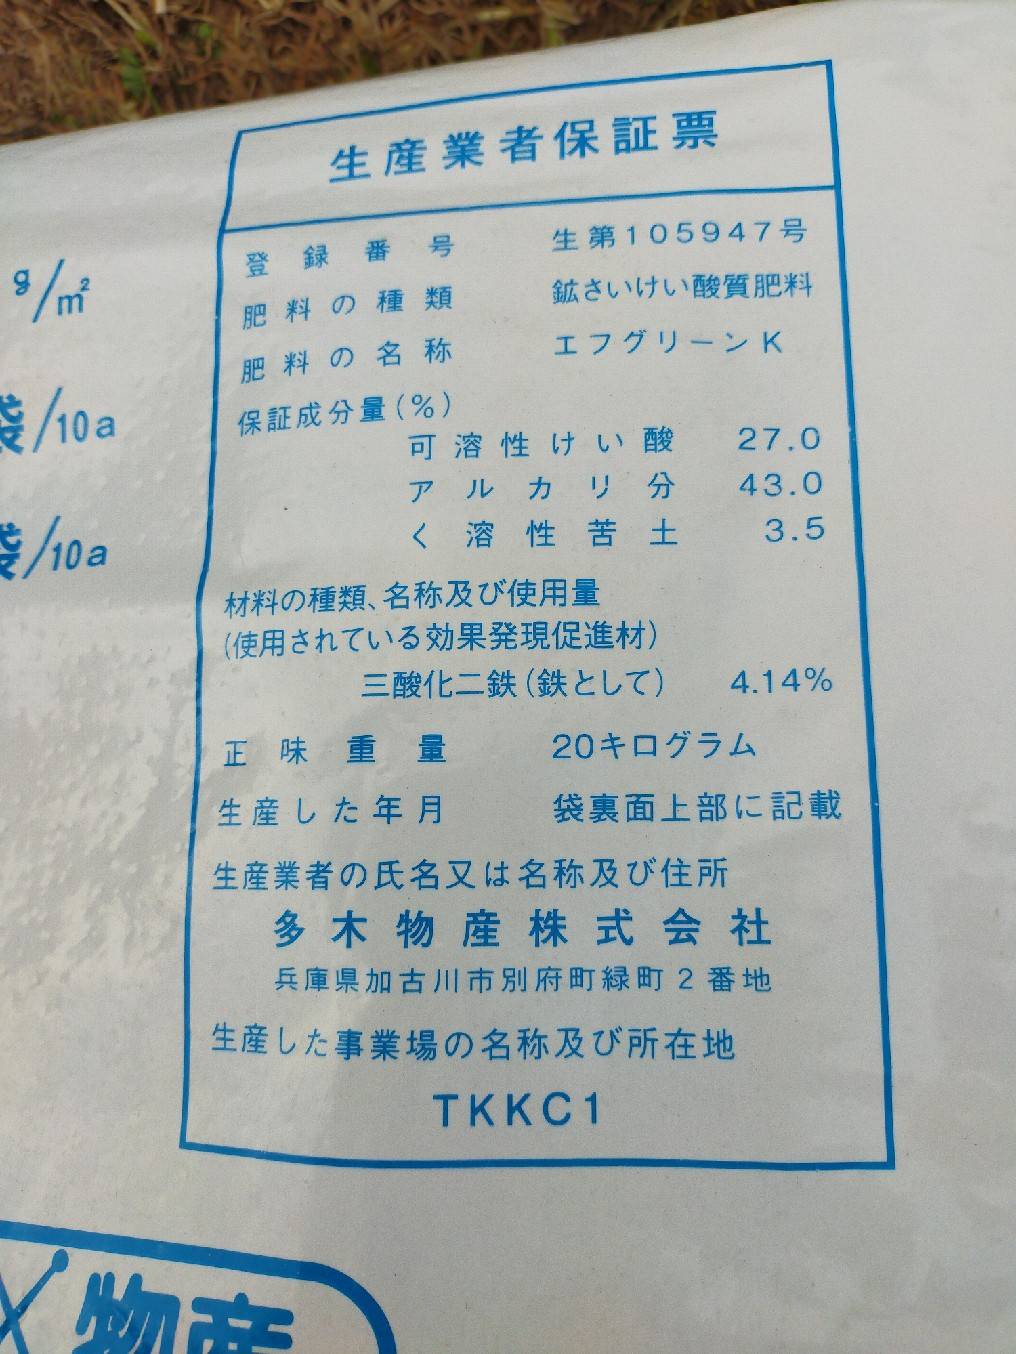 生産業者保証票
登録番号 生第105947号
肥料の種類 鉱さいけい酸質肥料
肥料の名称 エフグリーンK
保証成分量(%)
可溶性けい酸 27.0
アルカリ分 43.0
く溶性苦土 3.5
材料の種類、名称及び使用量
(使用されている効果発現促進材)
三酸化二鉄(鉄として) 4.14%
正味重量 20キログラム
生産した年月 袋裏面上部に記載
生産業者の氏名又は名称及び住所
多木物産株式会社
兵庫県加古川市別府町緑町2番地
生産した事業場の名称及び所在地
TKKC1
g/㎡
袋/10a
袋/10a
物産